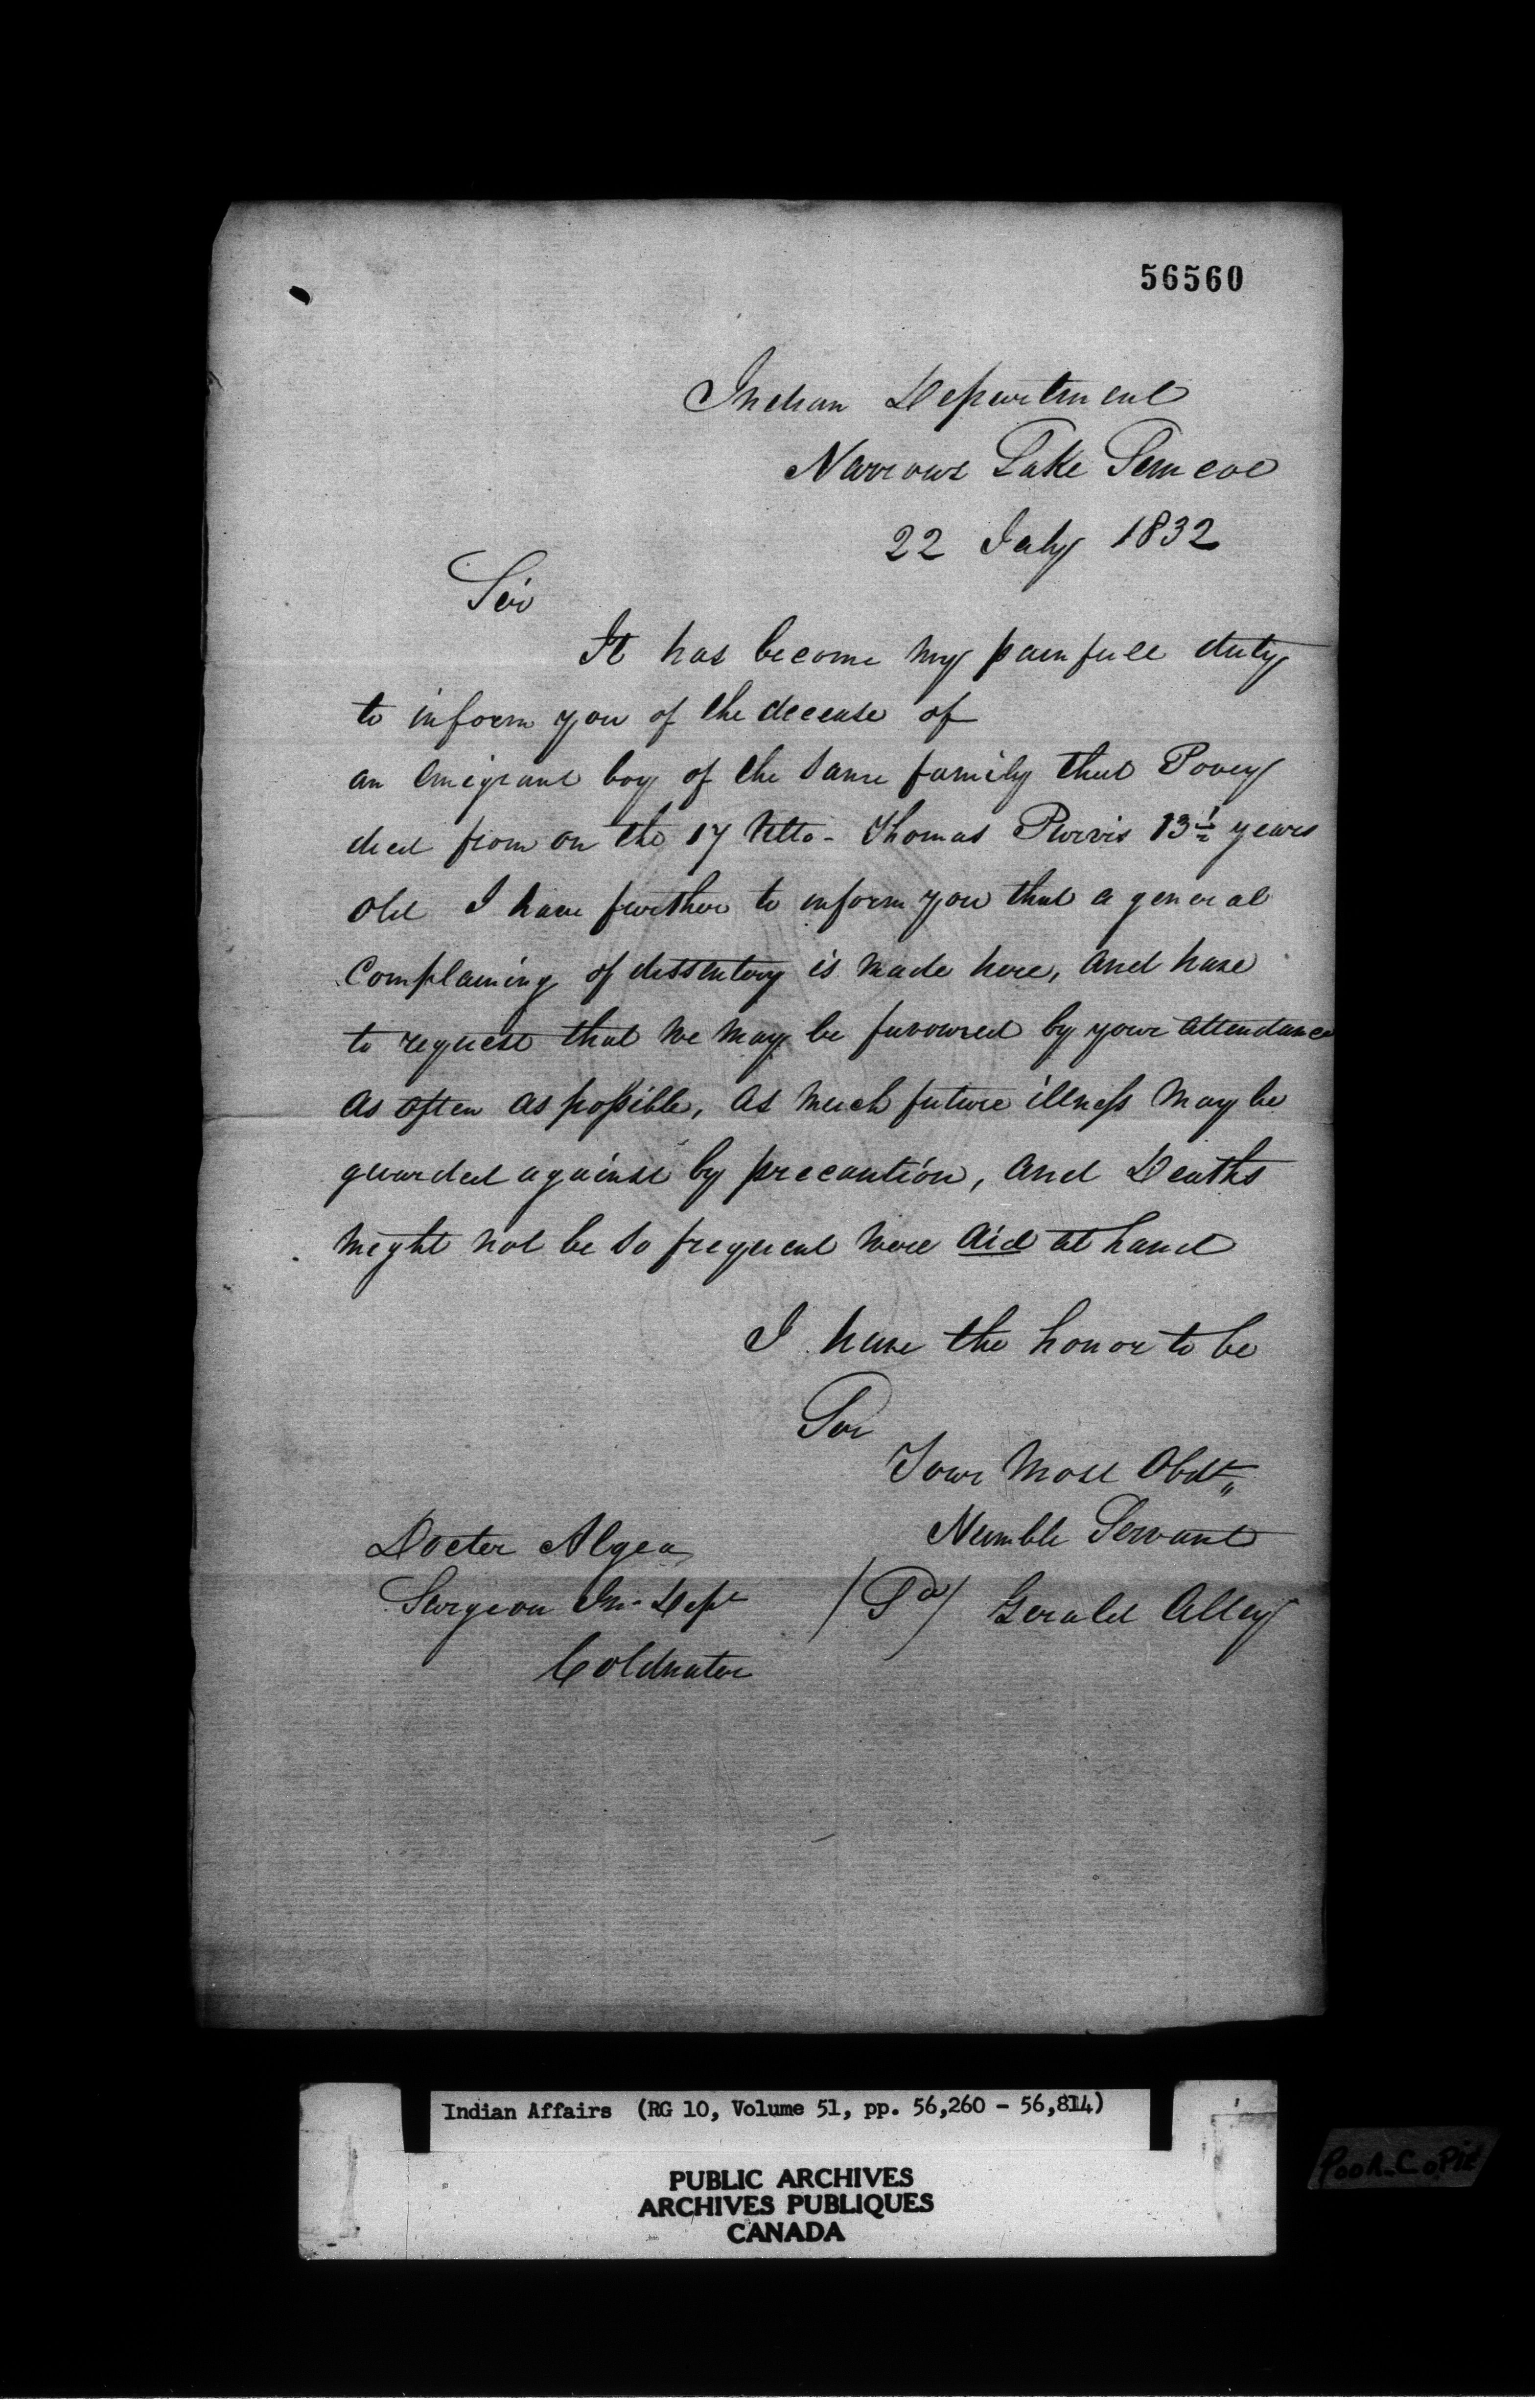 56560
Indian Department
Narrows Lake Simcoe
22 July 1832
Sir
It has become my painfull duty
to inform you of the decease of
an Emigrant boy of the same family that Povey
died from on the 17 Ulto - Thomas Purvis 13 ½ years
old I have further to inform you that a general
Complaining of dissentery is made here, and have
to request that we may be favoured by your attendance
as often as possible, as much future illness may be
guarded against by precaution, and Deaths
might not be so frequent were aid at hand
I have the honor to be
Sir
Your Most Obdt
Humble Servant
Docter Algeo
Surgeon In. Dept
Coldwater
(Sd) Gerald Alley
Indian Affairs (RG 10, Volume 51, pp. 56,260 - 56,814)
PUBLIC ARCHIVES
ARCHIVES PUBLIQUES
CANADA
POOR COPIE